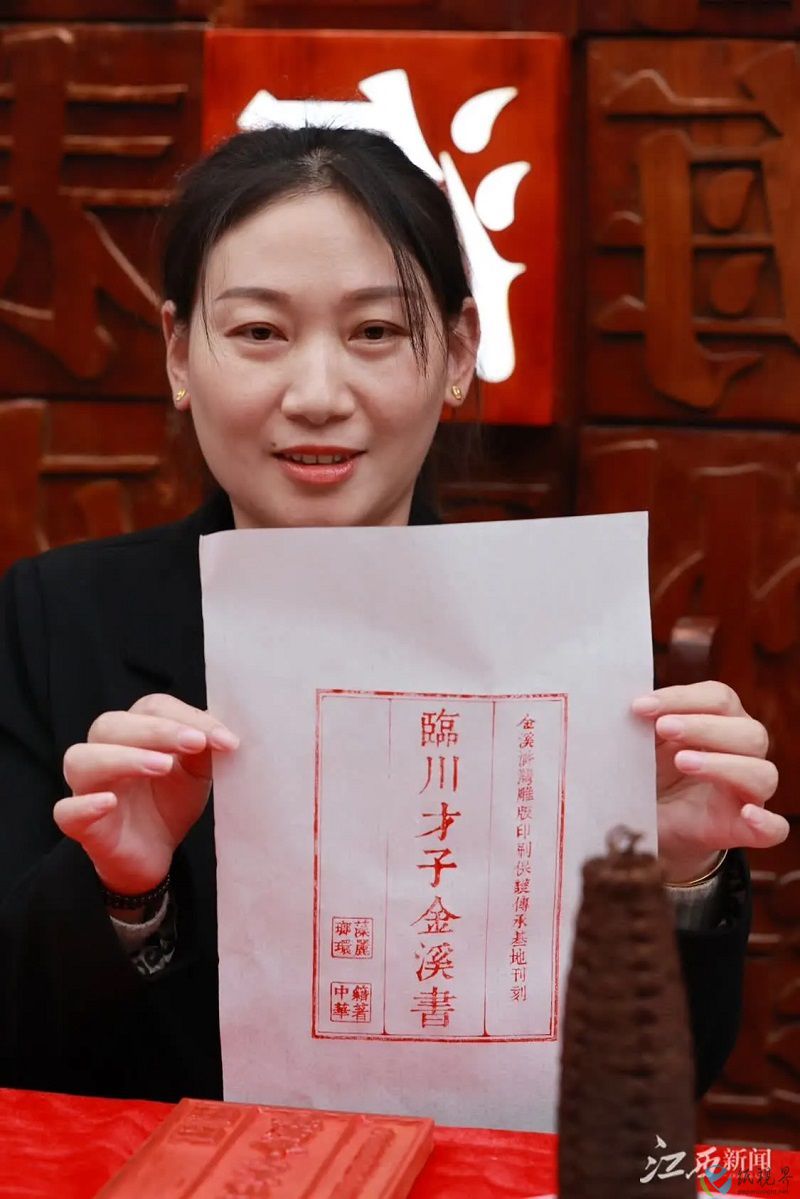 金溪滸灣雕版印刷保護傳承基地刊刻
臨川才子金溪書
藻麗
瑯環
籍著
中華
江西新闻